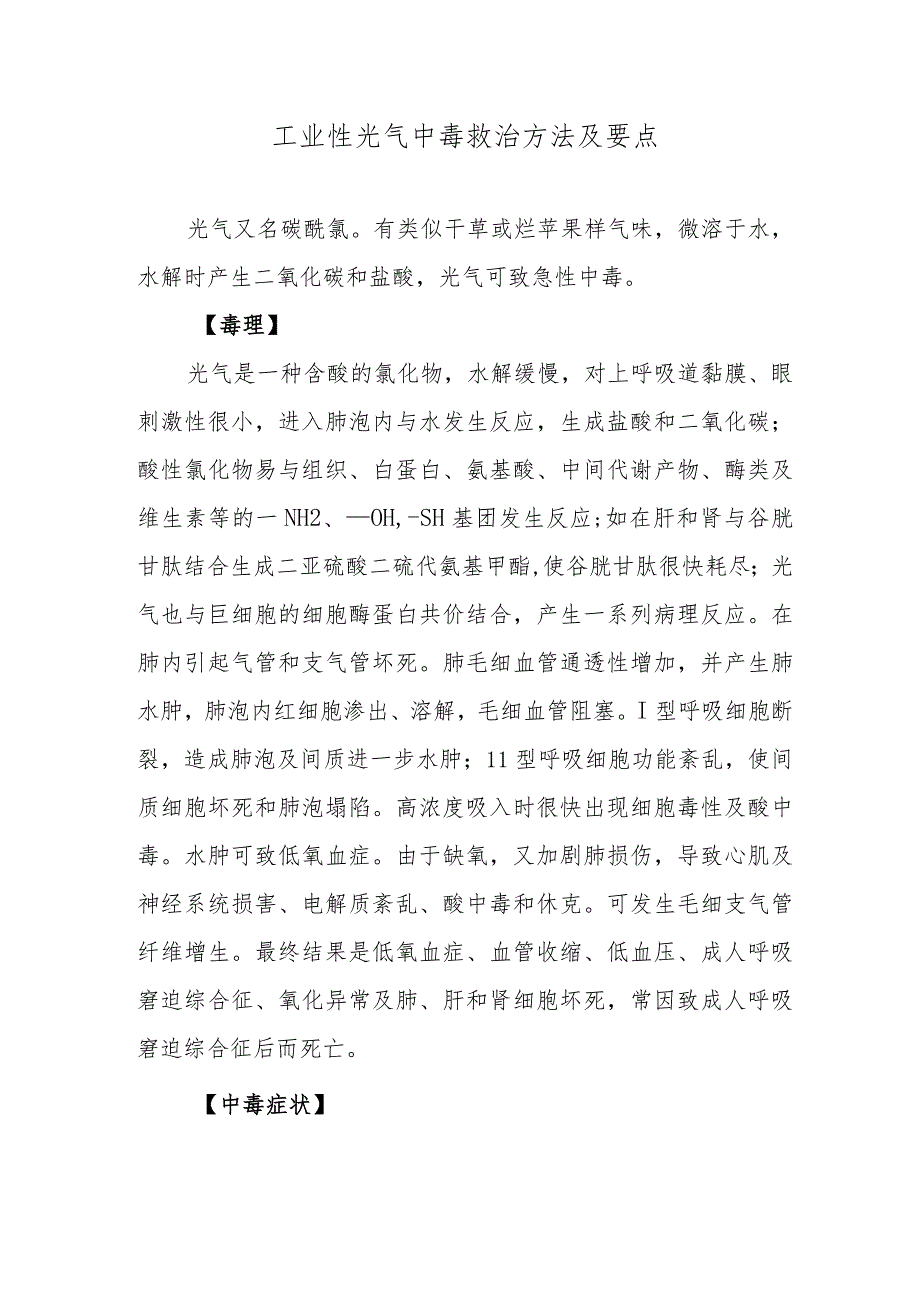 工业性光气中毒救治方法及要点
光气又名碳酰氯。有类似干草或烂苹果样气味，微溶于水，
水解时产生二氧化碳和盐酸，光气可致急性中毒。
【毒理】
光气是一种含酸的氯化物，水解缓慢，对上呼吸道黏膜、眼
刺激性很小，进入肺泡内与水发生反应，生成盐酸和二氧化碳；
酸性氯化物易与组织、白蛋白、氨基酸、中间代谢产物、酶类及
维生素等的一 NH2、—OH,-SH 基团发生反应;如在肝和肾与谷胱
甘肽结合生成二亚硫酸二硫代氨基甲酯,使谷胱甘肽很快耗尽；光
气也与巨细胞的细胞酶蛋白共价结合，产生一系列病理反应。在
肺内引起气管和支气管坏死。肺毛细血管通透性增加，并产生肺
水肿，肺泡内红细胞渗出、溶解，毛细血管阻塞。I 型呼吸细胞断
裂，造成肺泡及间质进一步水肿；11 型呼吸细胞功能紊乱，使间
质细胞坏死和肺泡塌陷。高浓度吸入时很快出现细胞毒性及酸中
毒。水肿可致低氧血症。由于缺氧，又加剧肺损伤，导致心肌及
神经系统损害、电解质紊乱、酸中毒和休克。可发生毛细支气管
纤维增生。最终结果是低氧血症、血管收缩、低血压、成人呼吸
窘迫综合征、氧化异常及肺、肝和肾细胞坏死，常因致成人呼吸
窘迫综合征后而死亡。
【中毒症状】